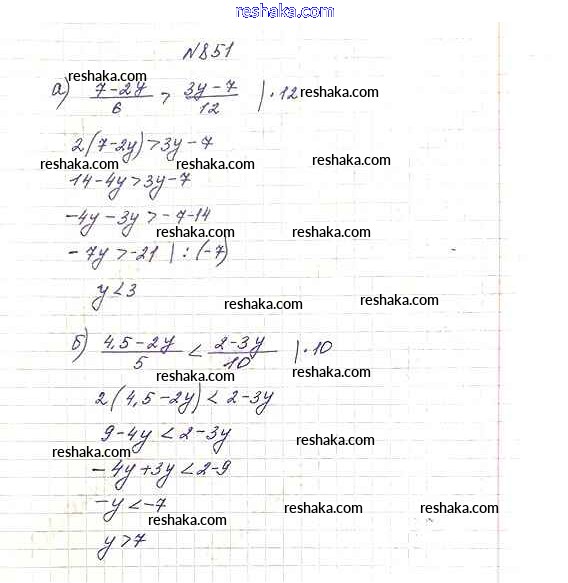 reshaka.com
N851
reshaka.com
а) (7-2y)/6 > (3y-7)/12 | · 12 reshaka.com
2(7-2y)>3y-7
reshaka.com reshaka.com reshaka.com
14-4y>3y-7
-4y-3y>-7-14
reshaka.com reshaka.com reshaka.com
-7y>-21 | : (-7)
y<3
reshaka.com reshaka.com
б) (4,5-2y)/5 < (2-3y)/10 | · 10
reshaka.com reshaka.com
2(4,5-2y)<2-3y
9-4y<2-3y
reshaka.com reshaka.com
-4y+3y<2-9
-y<-7
reshaka.com reshaka.com reshaka.com
y>7